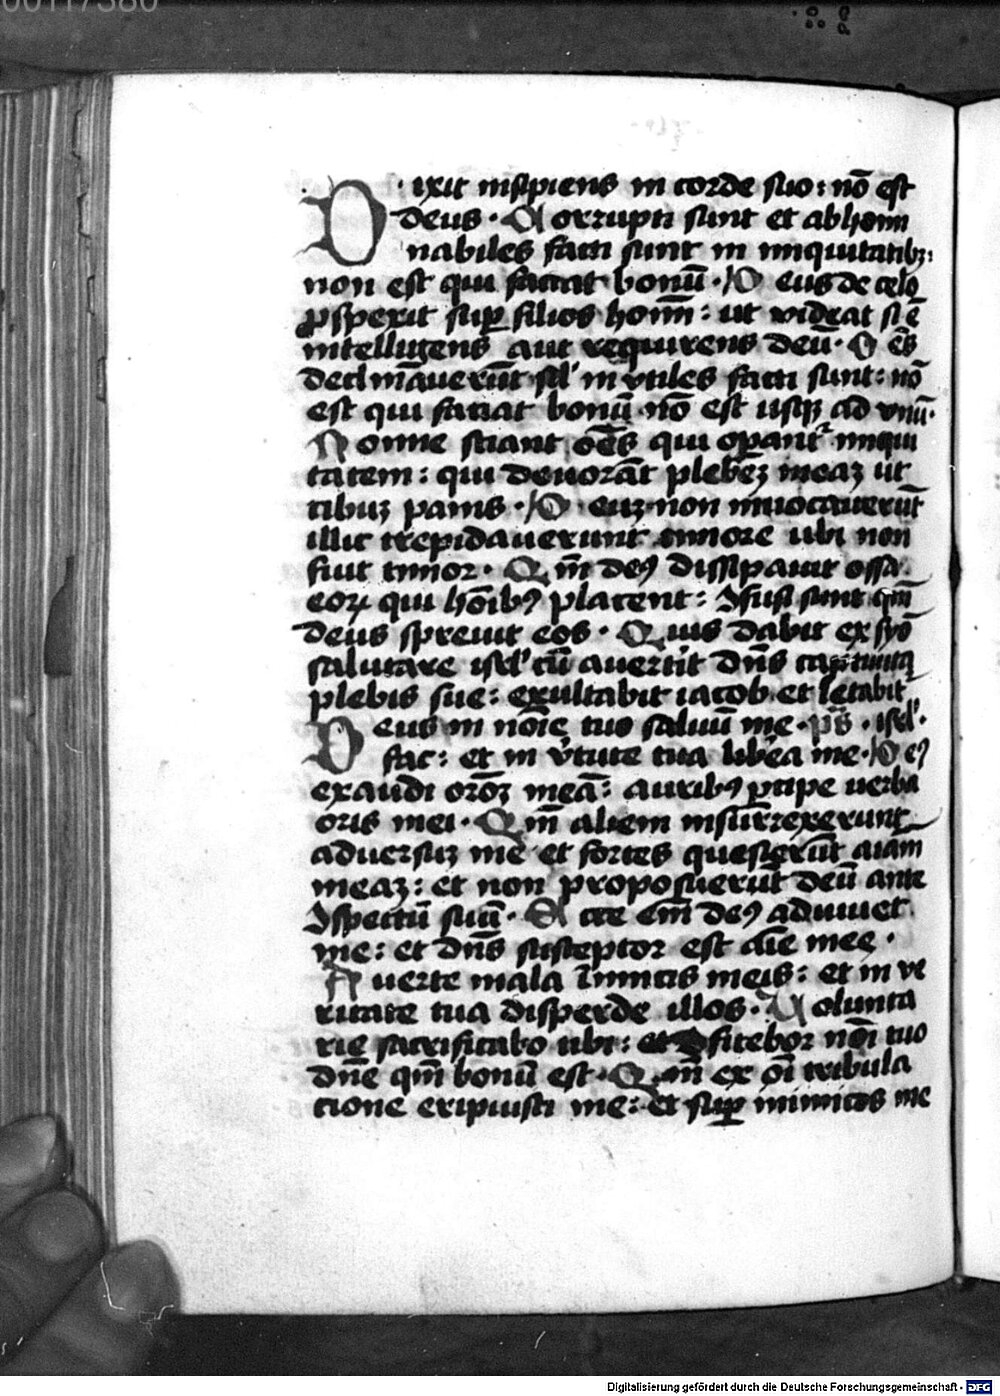 00117380
Dixit insipiens in corde suo: nō est
deus · Corrupti sunt et abhomi
nabiles facti sunt in iniquitatibꝫ:
non est qui faciat bonū · Deus de celo
prospexit suꝑ filios hoīm: ut videat si ē
intelligens aut requirens deū · Oēs
declināuerūt sil' inutiles facti sunt: nō
est qui faciat bonū nō est usqꝫ ad vnū·
Nonne sciant oēs qui oꝑant᷑ iniqui
tatem: qui deuorāt plebēꝫ meaꝫ ut
cibuꝫ panis · Deuꝫ non inuocauerūt
illic trepidauerunt timore ubi non
fuit timor · Qm̄ deꝰ dissipauit ossa
eoꝝ qui hoībꝰ placent: ɔfusi sunt qm̄
deus spreuit eos · Quis dabit ex syō
salutare isrl' cū auertit dn̄s captiuita
plebis sue: exultabit iacob et letabit᷑
Deus in noīe tuo saluū me · p̄s · isrl'·
fac: et in v̓tute tua libēa me · Deꝰ
exaudi orōꝫ meā: auribꝰ ꝑcipe uerba
oris mei · Qm̄ alieni insūrrexerunt
aduersuꝫ me et fortes quesierūt aīam
meaꝫ: et non proposuerūt deū ante
ɔspectū suū · Ecce em̄ deꝰ adiuuet
me: et dn̄s susceptor est aīe mee ·
Auerte mala inimicis meis: et in ve
ritate tua disperde illos · Volunta
rie sacrificabo tibi: et ɔfitebor nōi tuo
dn̄e qm̄ bonū est · Qm̄ ex oī tribula
cione eripuisti me: et suꝑ inimicos me
Digitalisierung gefördert durch die Deutsche Forschungsgemeinschaft - DFG